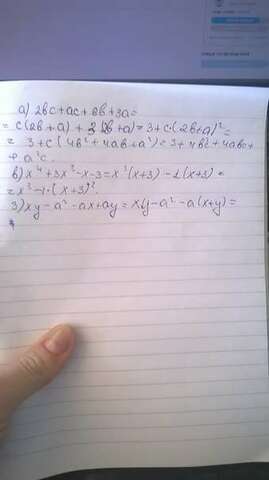 а) 2bc+ac+6b+3a=
=c(2b+a)+3(2b+a)=3+c·(2b+a)²=
=3+c(4b²+4ab+a²)=3+4b²c+4abc+
+a²c.
в) x⁴+3x³-x-3=x³(x+3)-1(x+3)=
=x³-1·(x+3)².
3) xy-a²-ax+ay=xy-a²-a(x+y)=